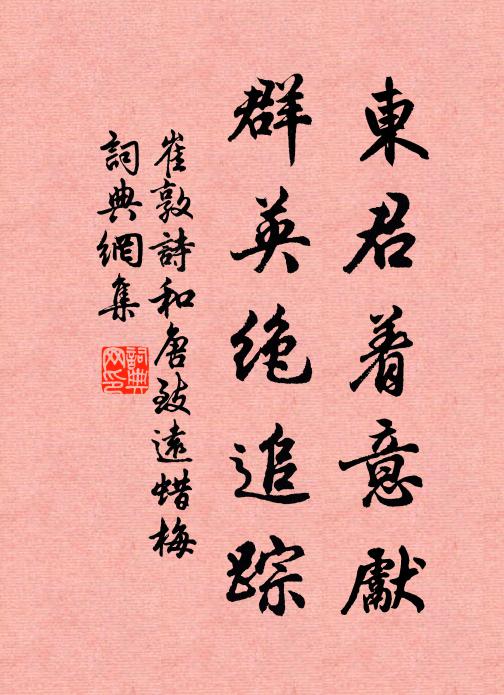 東君着意獻
群英絶追踪
崔敦詩和唐致遠蜡梅
詞典網集
詞典網印